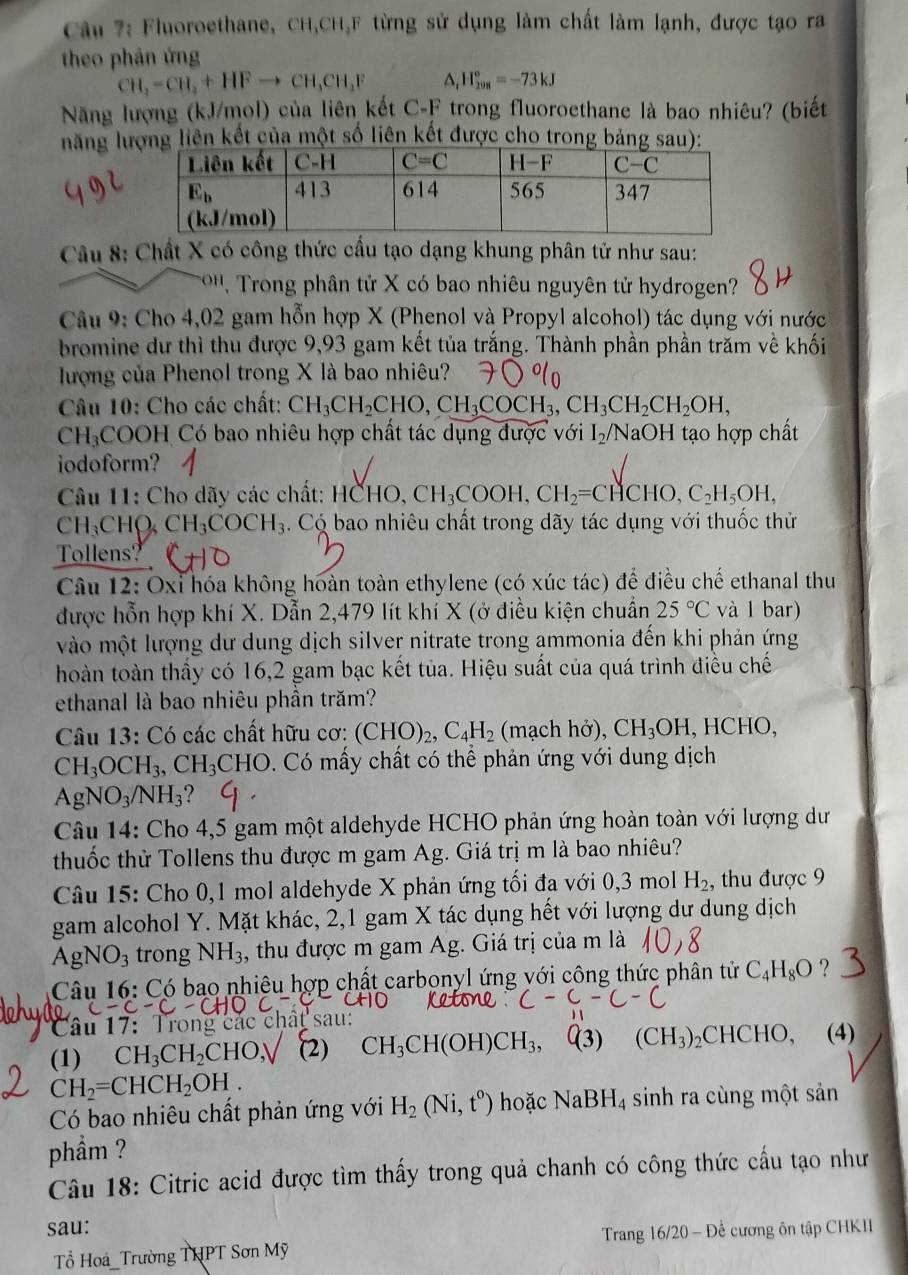 Câu 7: Fluoroethane, CH₃CH₂F từng sử dụng làm chất làm lạnh, được tạo ra
theo phản ứng
CH₂=CH₂ + HF → CH₃CH₂F ΔᵣH°₂₉₈ = −73 kJ
Năng lượng (kJ/mol) của liên kết C-F trong fluoroethane là bao nhiêu? (biết
năng lượng liên kết của một số liên kết được cho trong bảng sau):
Liên kết C-H C=C H−F C−C
492
E_b (kJ/mol) 413 614 565 347
Câu 8: Chất X có công thức cấu tạo dạng khung phân tử như sau:
OH. Trong phân tử X có bao nhiêu nguyên tử hydrogen? 8H
Câu 9: Cho 4,02 gam hỗn hợp X (Phenol và Propyl alcohol) tác dụng với nước
bromine dư thì thu được 9,93 gam kết tủa trắng. Thành phần phần trăm về khối
lượng của Phenol trong X là bao nhiêu? 70%
Câu 10: Cho các chất: CH₃CH₂CHO, CH₃COCH₃, CH₃CH₂CH₂OH,
CH₃COOH Có bao nhiêu hợp chất tác dụng được với I₂/NaOH tạo hợp chất
iodoform? 1
Câu 11: Cho dãy các chất: HCHO, CH₃COOH, CH₂=CHCHO, C₂H₅OH,
CH₃CHO, CH₃COCH₃. Có bao nhiêu chất trong dãy tác dụng với thuốc thử
Tollens? CHO 3
Câu 12: Oxi hóa không hoàn toàn ethylene (có xúc tác) để điều chế ethanal thu
được hỗn hợp khí X. Dẫn 2,479 lít khí X (ở điều kiện chuẩn 25 °C và 1 bar)
vào một lượng dư dung dịch silver nitrate trong ammonia đến khi phản ứng
hoàn toàn thấy có 16,2 gam bạc kết tủa. Hiệu suất của quá trình điều chế
ethanal là bao nhiêu phần trăm?
Câu 13: Có các chất hữu cơ: (CHO)₂, C₄H₂ (mạch hở), CH₃OH, HCHO,
CH₃OCH₃, CH₃CHO. Có mấy chất có thể phản ứng với dung dịch
AgNO₃/NH₃?
Câu 14: Cho 4,5 gam một aldehyde HCHO phản ứng hoàn toàn với lượng dư
thuốc thử Tollens thu được m gam Ag. Giá trị m là bao nhiêu?
Câu 15: Cho 0,1 mol aldehyde X phản ứng tối đa với 0,3 mol H₂, thu được 9
gam alcohol Y. Mặt khác, 2,1 gam X tác dụng hết với lượng dư dung dịch
AgNO₃ trong NH₃, thu được m gam Ag. Giá trị của m là 10,8
Câu 16: Có bao nhiêu hợp chất carbonyl ứng với công thức phân tử C₄H₈O ? 3
dehyde C-C-C-CHO C-C-CHO Ketone: C-C-C-C
Câu 17: Trong các chất sau:
(1) CH₃CH₂CHO, (2) CH₃CH(OH)CH₃, (3) (CH₃)₂CHCHO, (4)
2 CH₂=CHCH₂OH .
Có bao nhiêu chất phản ứng với H₂ (Ni, tº) hoặc NaBH₄ sinh ra cùng một sản
phẩm ?
Câu 18: Citric acid được tìm thấy trong quả chanh có công thức cấu tạo như
sau:
Trang 16/20 – Đề cương ôn tập CHKII
Tổ Hoá_Trường THPT Sơn Mỹ